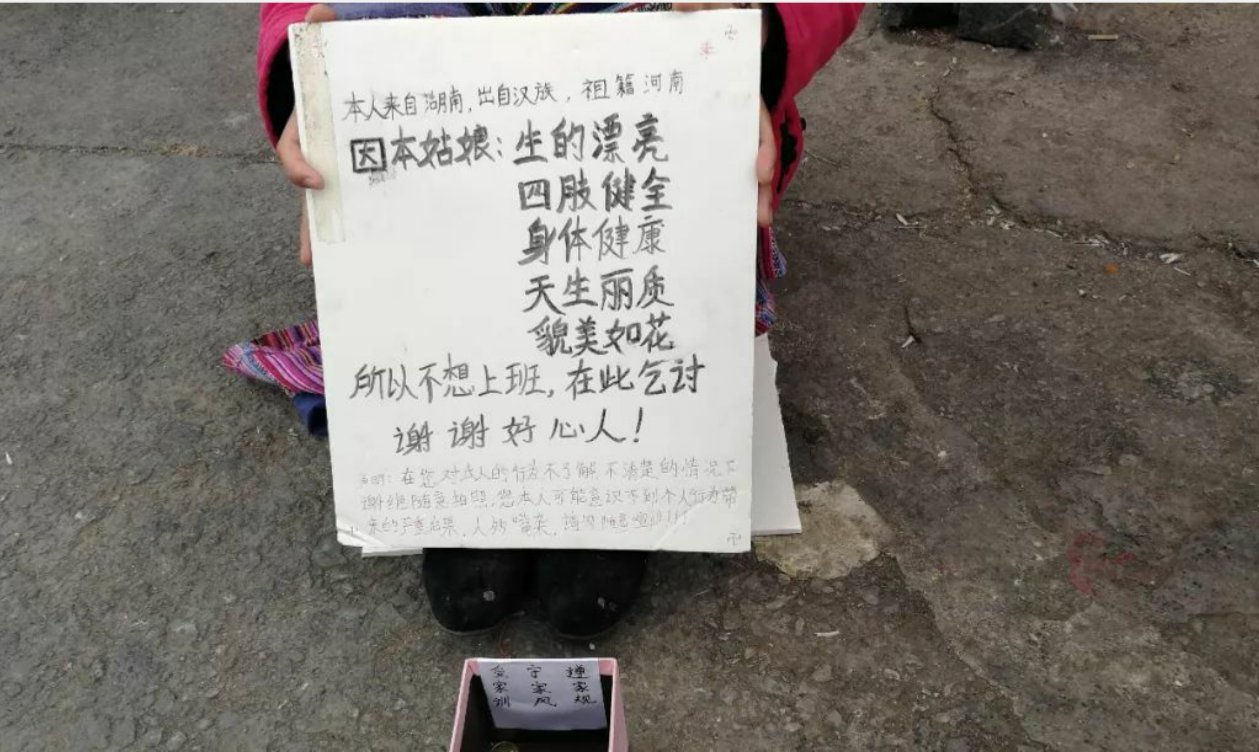 本人来自湖南,出自汉族,祖籍河南
因本姑娘:生的漂亮
四肢健全
身体健康
天生丽质
貌美如花
所以不想上班,在此乞讨
谢谢好心人!
声明:在您对本人的行为不了解不清楚的情况下
谢绝随意拍照,您本人可能意识不到个人行为带
来的严重后果,人多嘴杂,请勿随意
遵家规
守家风
家训